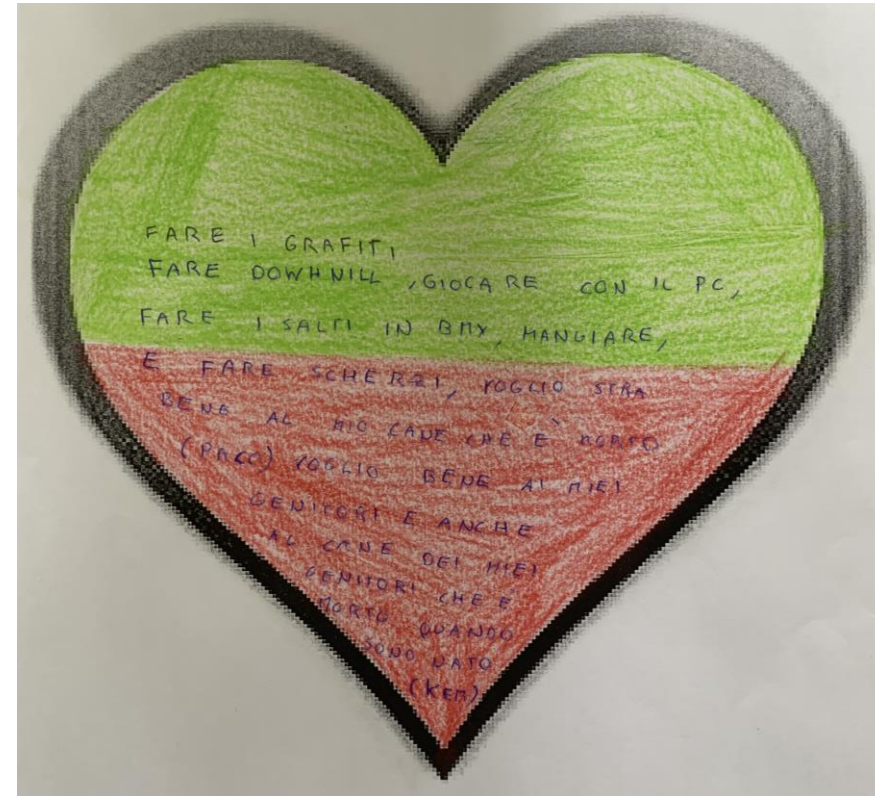 FARE I GRAFITI
FARE DOWHNILL, GIOCARE CON IL PC,
FARE I SALTI IN BMX, MANGIARE,
E FARE SCHERZI, VOGLIO STRA
BENE AL MIO CANE CHE È MORTO
(PACO) VOGLIO BENE AI MIEI
GENITORI E ANCHE
AL CANE DEI MIEI
GENITORI CHE E
MORTO QUANDO
SONO NATO
(KEM)